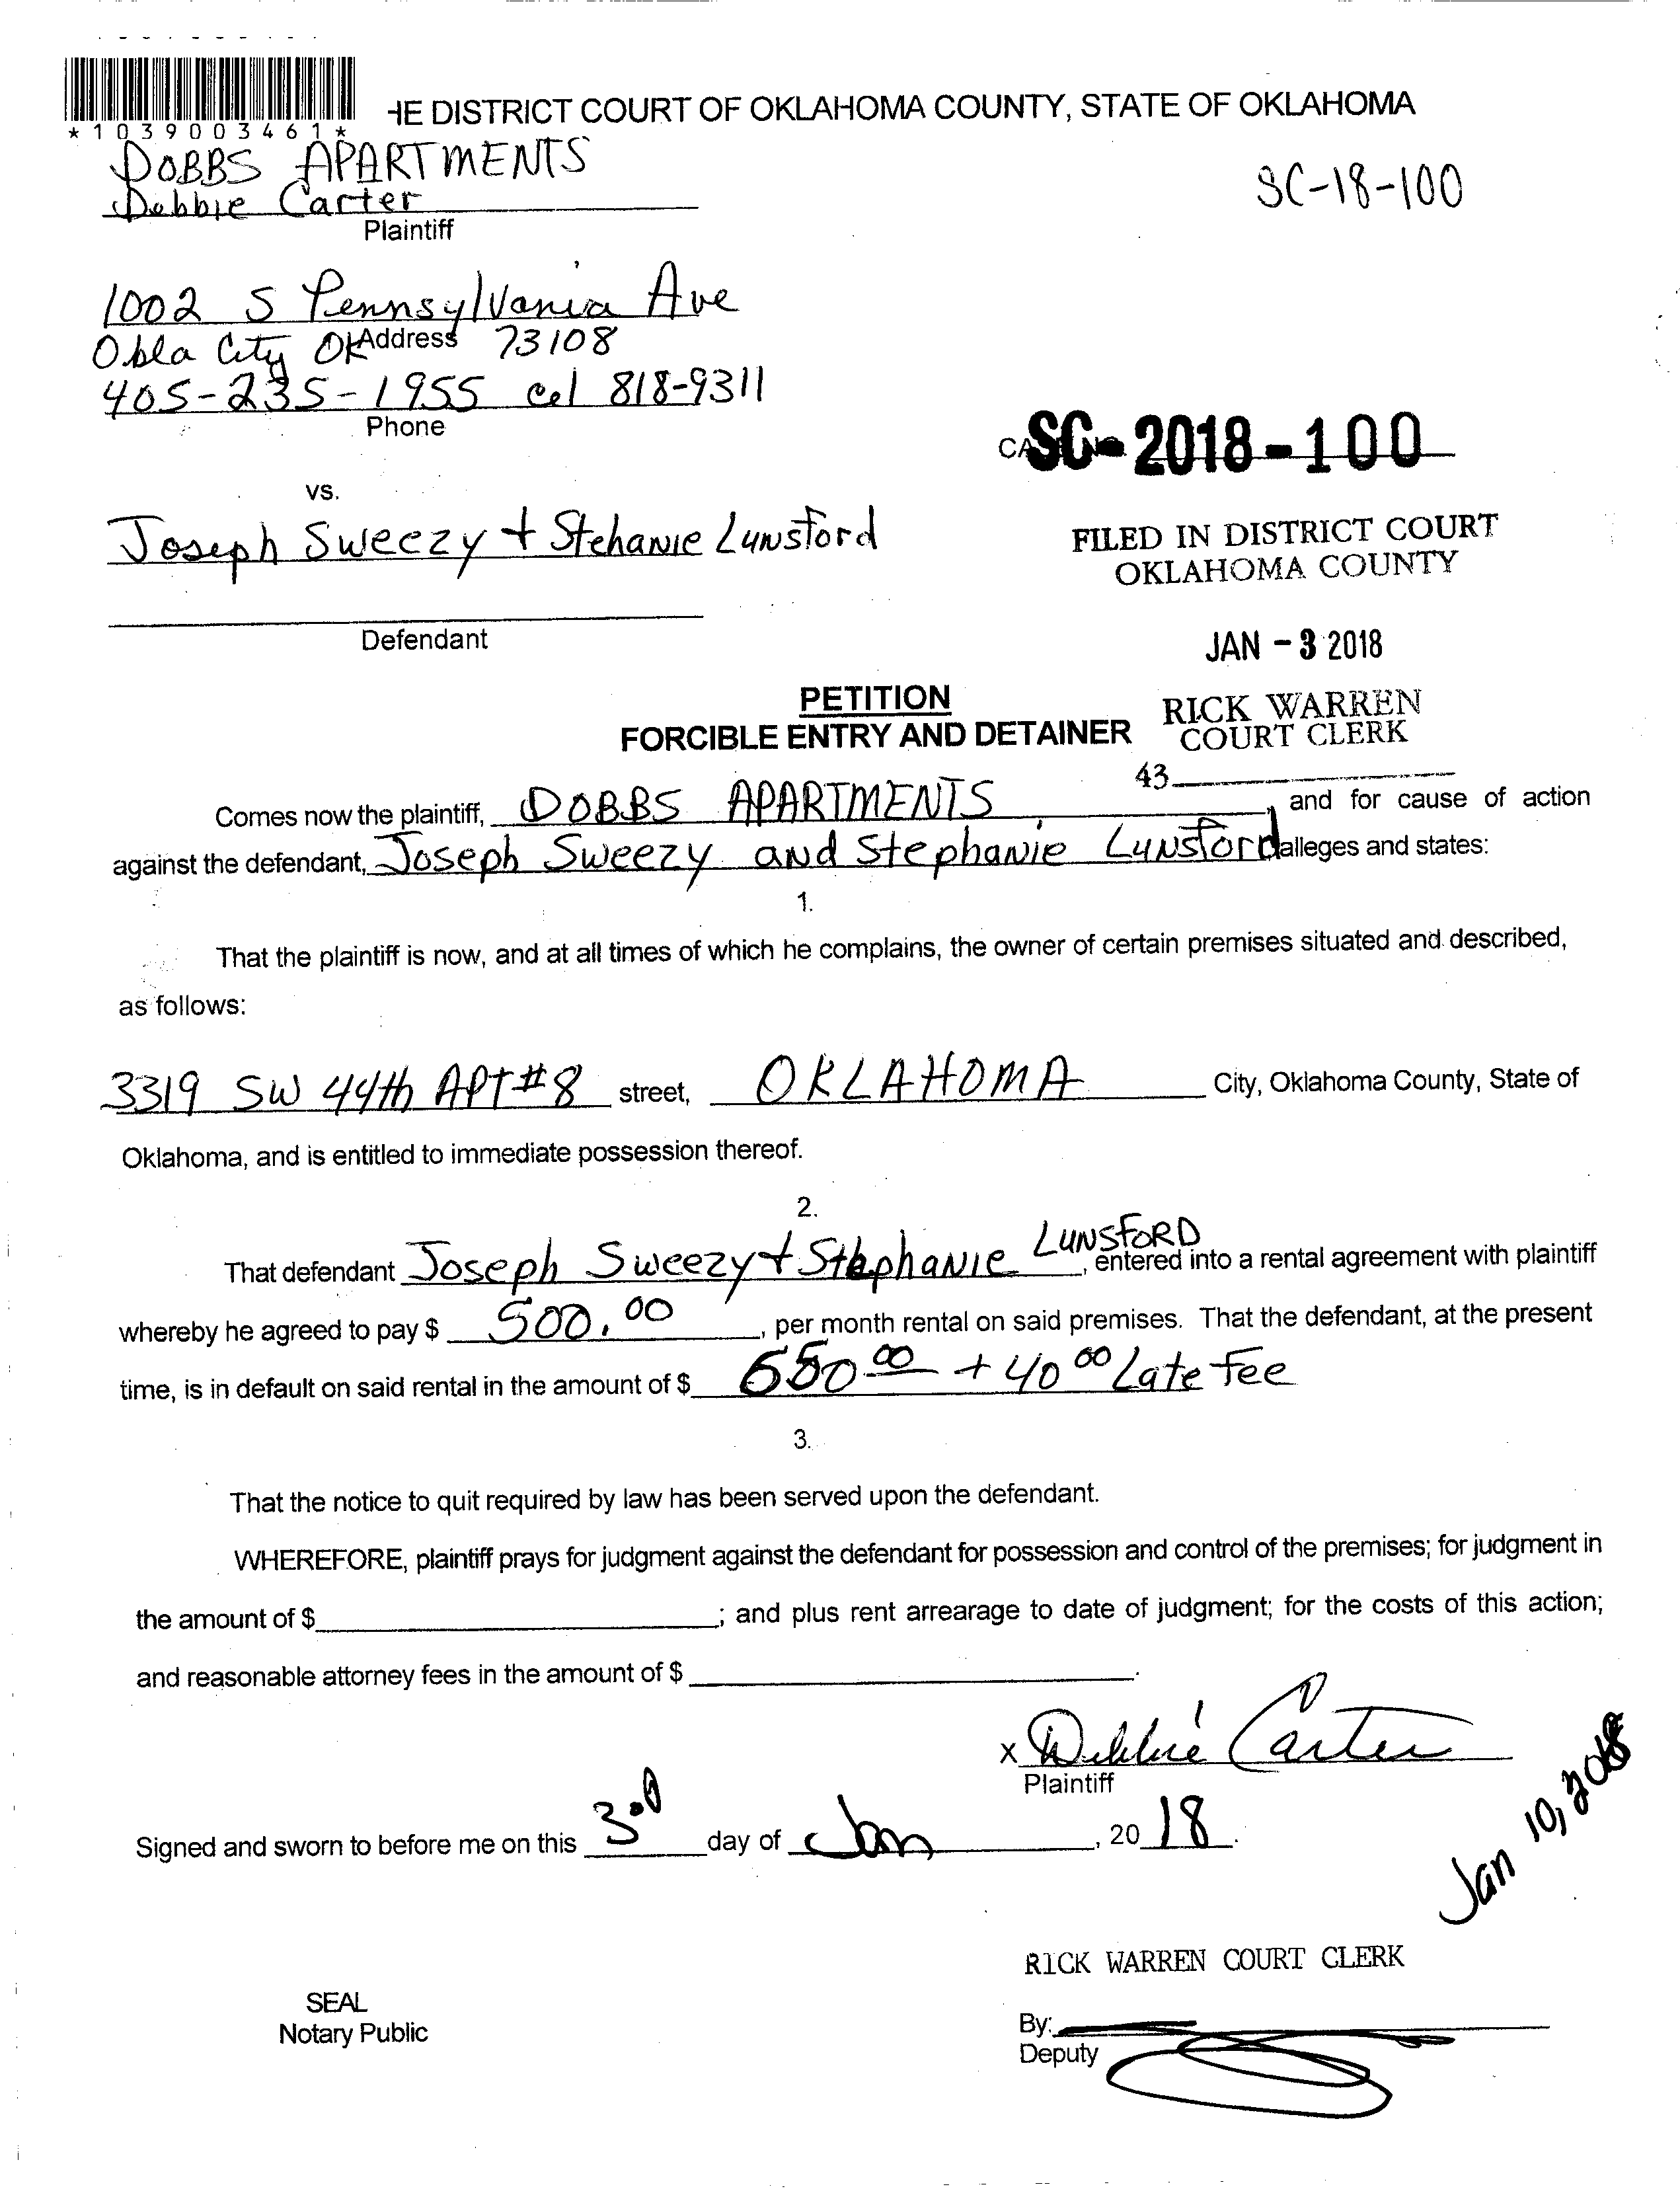 *1039003461*
HE DISTRICT COURT OF OKLAHOMA COUNTY, STATE OF OKLAHOMA
DOBBS APARTMENTS
Debbie Carter
Plaintiff
SC-18-100
1002 S Pennsylvania Ave
Okla City OK Address 73108
405-235-1955 cel 818-9311
Phone
SC-2018-100
vs.
Joseph Sweezy + Stehanie Lunsford
FILED IN DISTRICT COURT
OKLAHOMA COUNTY
Defendant
JAN - 3 2018
PETITION
FORCIBLE ENTRY AND DETAINER
RICK WARREN
COURT CLERK
43
Comes now the plaintiff, DOBBS APARTMENTS, and for cause of action
against the defendant, Joseph Sweezy and Stephanie Lunsford alleges and states:
1.
That the plaintiff is now, and at all times of which he complains, the owner of certain premises situated and described,
as follows:
3319 SW 44th APT#8 street, OKLAHOMA City, Oklahoma County, State of
Oklahoma, and is entitled to immediate possession thereof.
2.
That defendant Joseph Sweezy + Stephanie LUNSFORD, entered into a rental agreement with plaintiff
whereby he agreed to pay $ 500.00, per month rental on said premises. That the defendant, at the present
time, is in default on said rental in the amount of $ 00 + 40 00 Late Fee
3.
That the notice to quit required by law has been served upon the defendant.
WHEREFORE, plaintiff prays for judgment against the defendant for possession and control of the premises; for judgment in
the amount of $; and plus rent arrearage to date of judgment; for the costs of this action;
and reasonable attorney fees in the amount of $.
x Debbie Carter
Plaintiff
Signed and sworn to before me on this 3rd day of Jan, 20 18.
Jan 10, 2018
RICK WARREN COURT CLERK
SEAL
Notary Public
By:
Deputy